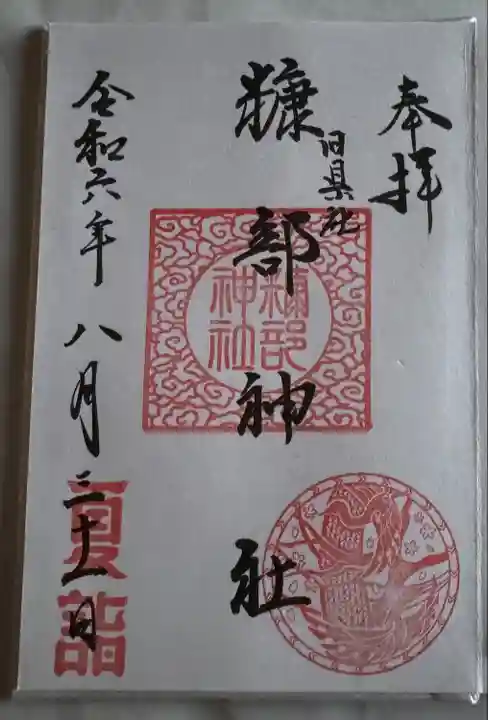 奉拝
旧県社
糠部神社
糠部神社
令和六年八月三十一日
夏詣